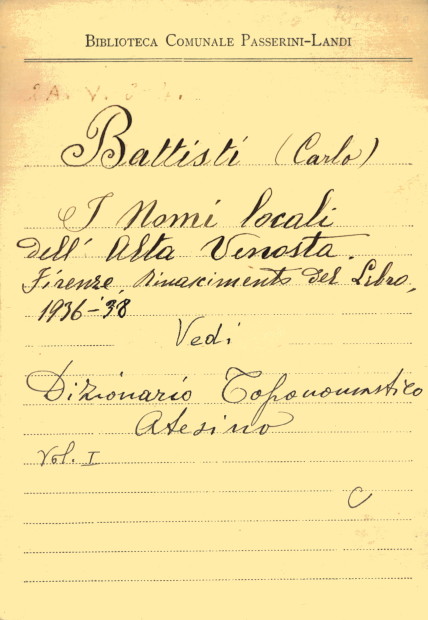 Biblioteca Comunale Passerini-Landi
Battisti (Carlo)
I Nomi locali
dell' Alta Venosta.
Firenze, Rinascimento del Libro,
1936-'38
Vedi
Dizionario Toponomastico
Atesino
Vol. I
C